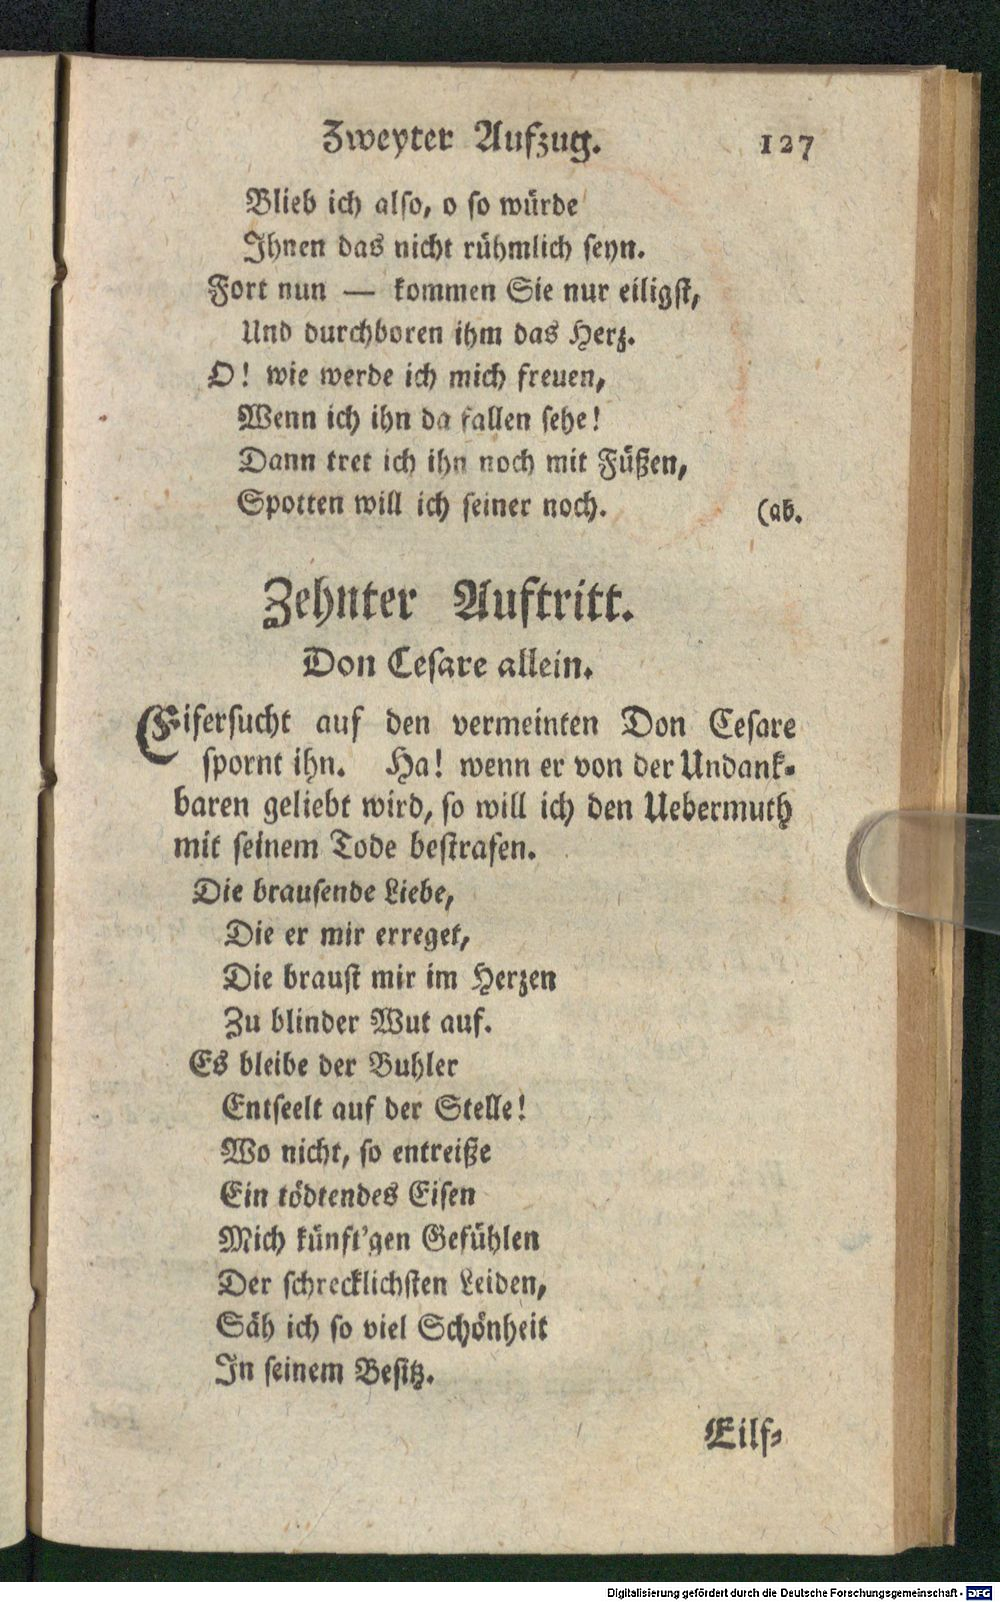 Zweyter Aufzug. 127
Blieb ich alſo, o ſo würde
Ihnen das nicht rühmlich ſeyn.
Fort nun — kommen Sie nur eiligſt,
Und durchboren ihm das Herz.
O! wie werde ich mich freuen,
Wenn ich ihn da fallen ſehe!
Dann tret ich ihn noch mit Füßen,
Spotten will ich ſeiner noch. (ab.
Zehnter Auftritt.
Don Ceſare allein.
Eiferſucht auf den vermeinten Don Ceſare
ſpornt ihn. Ha! wenn er von der Undank-
baren geliebt wird, ſo will ich den Uebermuth
mit ſeinem Tode beſtrafen.
Die brauſende Liebe,
Die er mir erreget,
Die brauſt mir im Herzen
Zu blinder Wut auf.
Es bleibe der Buhler
Entſeelt auf der Stelle!
Wo nicht, ſo entreiße
Ein tödtendes Eiſen
Mich künft'gen Gefühlen
Der ſchrecklichſten Leiden,
Säh ich ſo viel Schönheit
In ſeinem Beſitz.
Eilf-
Digitalisierung gefördert durch die Deutsche Forschungsgemeinschaft - DFG